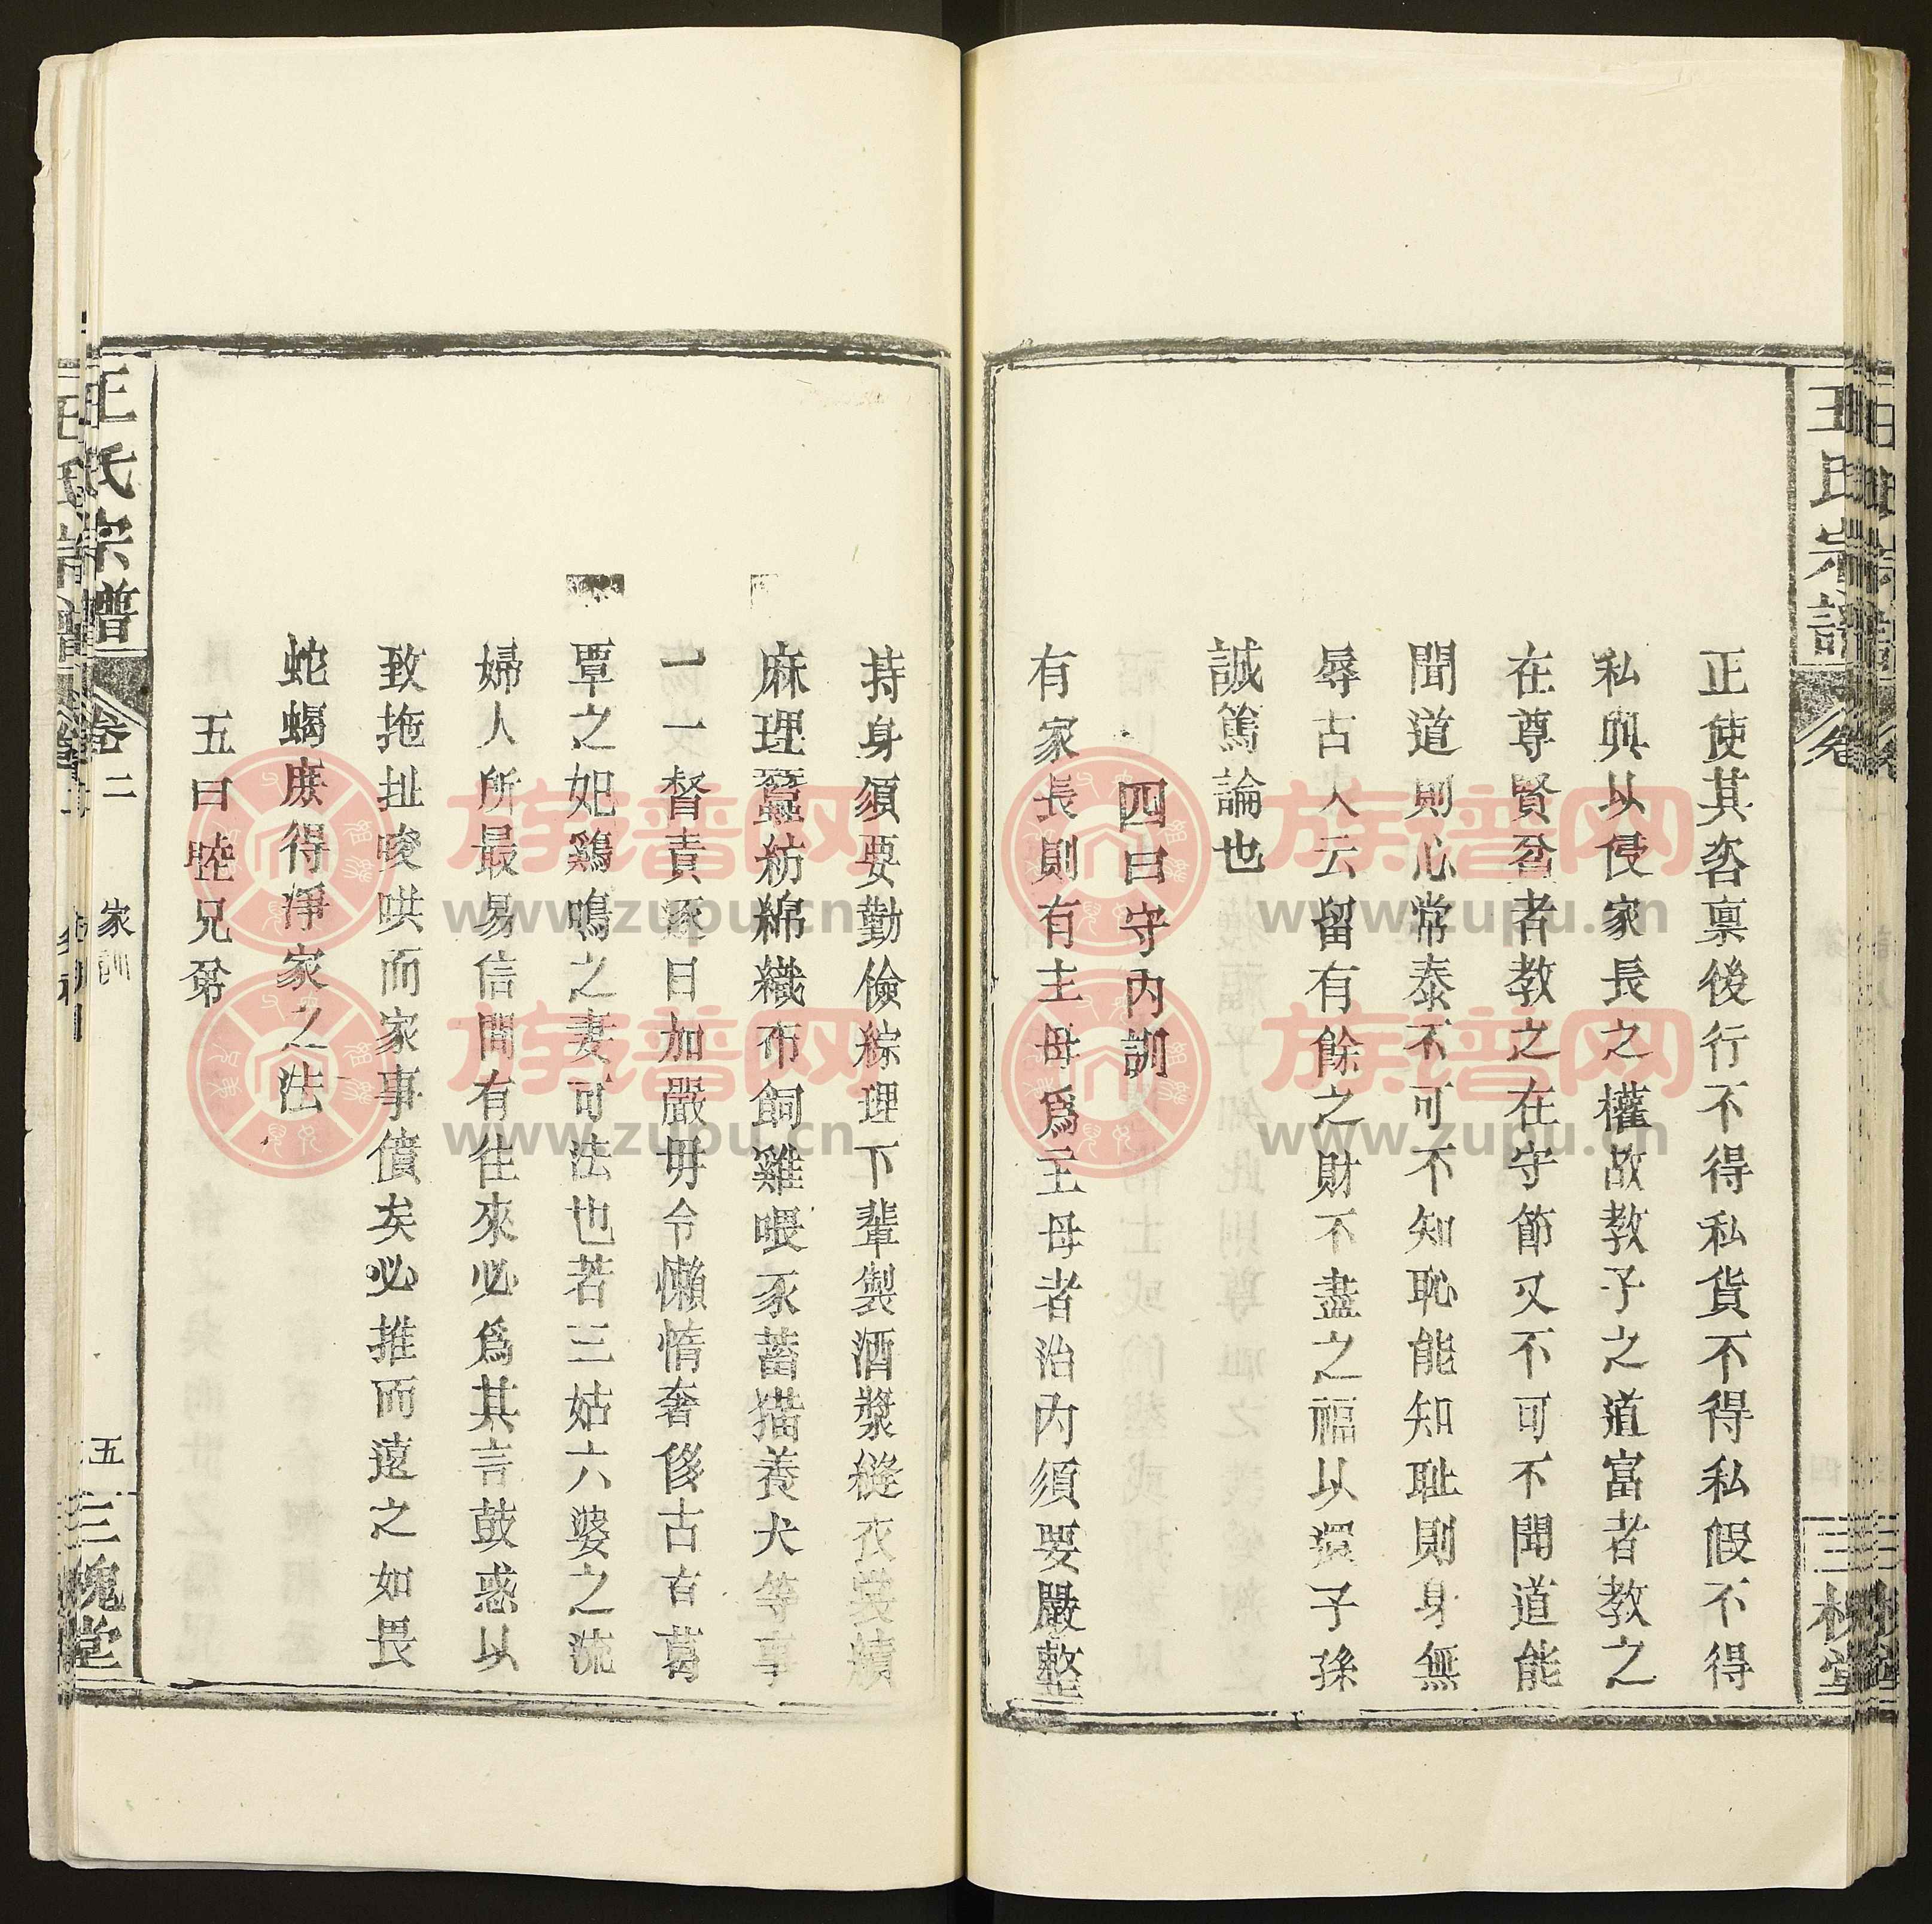 王氏宗譜
卷
三槐堂
正使其咨稟後行不得私貨不得私假不得
私與以侵家長之權故教子之道富者教之
在尊賢貧者教之在守節又不可不聞道能
聞道則心常泰不可不知恥能知耻則身無
辱古人云留有餘之財不盡之福以還子孫
誠篤論也
四曰守內訓
有家長則有主母爲主母者治內須要嚴整
持身須要勤儉綜理下輩製酒漿縫衣裳績
麻理蠶紡綿織布飼雞喂豕蓄猫養犬等事
一一督責逐日加嚴毋令懶惰奢侈古有葛
覃之妃鷄鳴之妻可法也若三姑六婆之流
婦人所最易信間有往來必爲其言鼓惑以
致拖扯唆哄而家事僨矣必推而遠之如畏
蛇蝎庶得淨家之法
五曰睦兄弟
王氏宗譜
卷二
家訓
五
三槐堂
族譜网
www.zupu.cn
族譜网
www.zupu.cn
族譜网
www.zupu.cn
族譜网
www.zupu.cn